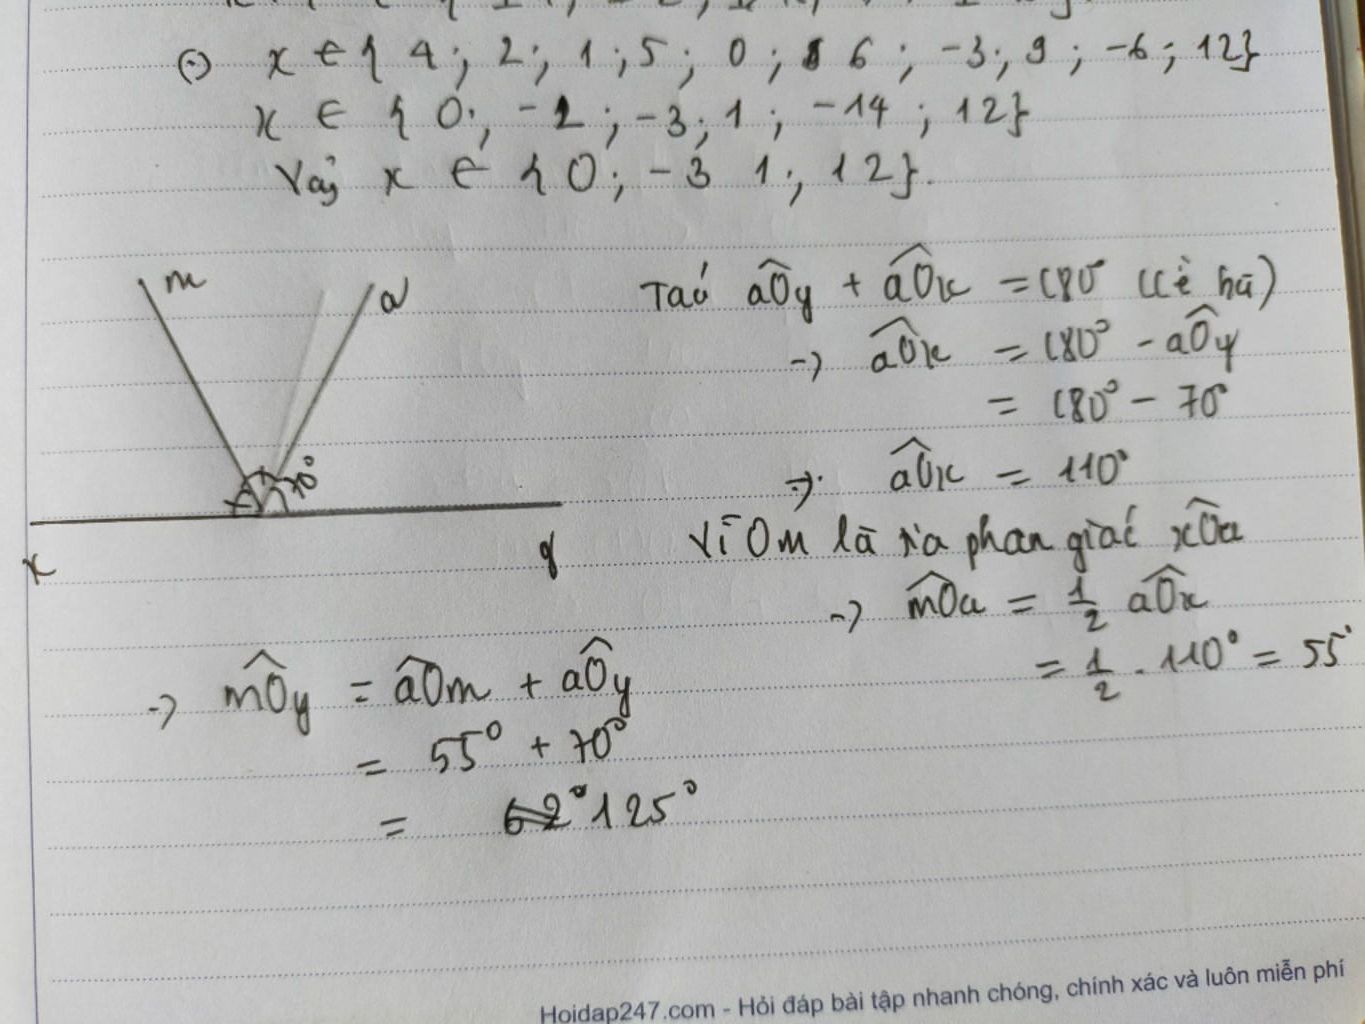 x ∈ { 4 ; 2 ; 1 ; 5 ; 0 ; 6 ; -3 ; 9 ; -6 ; 12}
x ∈ { 0 ; -2 ; -3 ; 1 ; -14 ; 12}
Vậy x ∈ { 0 ; -3 1 ; 12}.
m
a
70°
x
y
Ta có aÔy + aÔx = 180° (kề bù)
→ aÔx = 180° - aÔy
= 180° - 70°
→ aÔx = 110°
Vì Om là tia phan giác xÔa
→ mÔa = 1/2 aÔx
= 1/2 . 110° = 55°
→ mÔy = aÔm + aÔy
= 55° + 70°
= 125°
Hoidap247.com - Hỏi đáp bài tập nhanh chóng, chính xác và luôn miễn phí